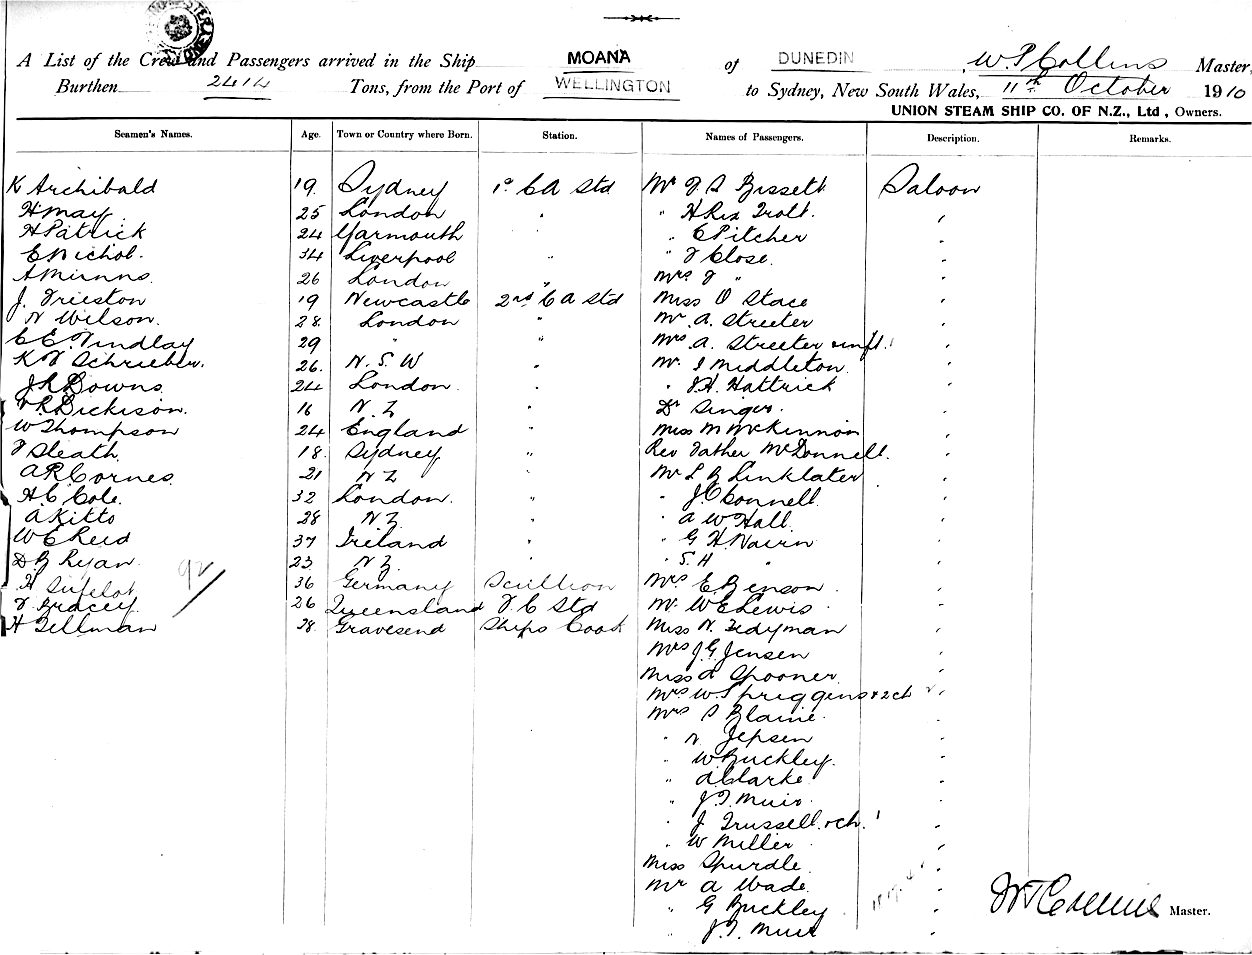 A List of the Crew and Passengers arrived in the Ship MOANA of DUNEDIN W. P. Collins Master,
Burthen 2414 Tons, from the Port of WELLINGTON to Sydney, New South Wales, 11th October 1910
UNION STEAM SHIP CO. OF N.Z., Ltd, Owners.
Seamen's Names. Age. Town or Country where Born. Station. Names of Passengers. Description. Remarks.
K Archibald 19 Sydney 1st C A Std Mr J S Bissett Saloon
H May 25 London " " H Rex Trott "
H Patrick 24 Yarmouth " C Pitcher "
E Nichol 34 Liverpool " " J Close "
A Minns 26 London " Mrs J " "
J. Treeston 19 Newcastle 2nd C A Std Miss O Stace "
N Wilson 28 London " Mr A. Streeter "
C E. Findlay 29 " " Mrs A. Streeter & inft. 1 "
K V Schrieber 26 N. S. W " Mr. J Middleton "
J R Downs 24 London " " J. H. Hattrick "
R Dickison 16 N. Z " Dr Singer "
W Thompson 24 England " Miss M McKinnon "
J Sleath 18 Sydney " Rev Father McDonnell "
A R Cornes 21 N Z " Mr L B Linklater "
H. C Cole 32 London " " J. C Connell "
A Kitto 28 N Z " " A W Hall "
W E Reid 37 Ireland " " G H Nairn "
D B Ryan 23 N Z " " S. H " "
H 36 Germany Scullion Mrs E Benson "
J Tracey 26 Queensland F. C Std Mr W E Lewis "
H Tellman 28 Gravesend Ships Cook Miss N. Tedyman "
92
Mrs J G Jensen "
Miss A Spooner "
Mrs W Spriggens & 2 ch "
Mrs S Blaine "
" N Jepsen "
" W Buckley "
" A Clarke "
" J. T. Muir "
" J Trussell & ch. 1 "
" W Miller "
Miss Spurdle "
Mr A Wade "
" G Buckley "
" J. T. Muir "
W P Collins Master.